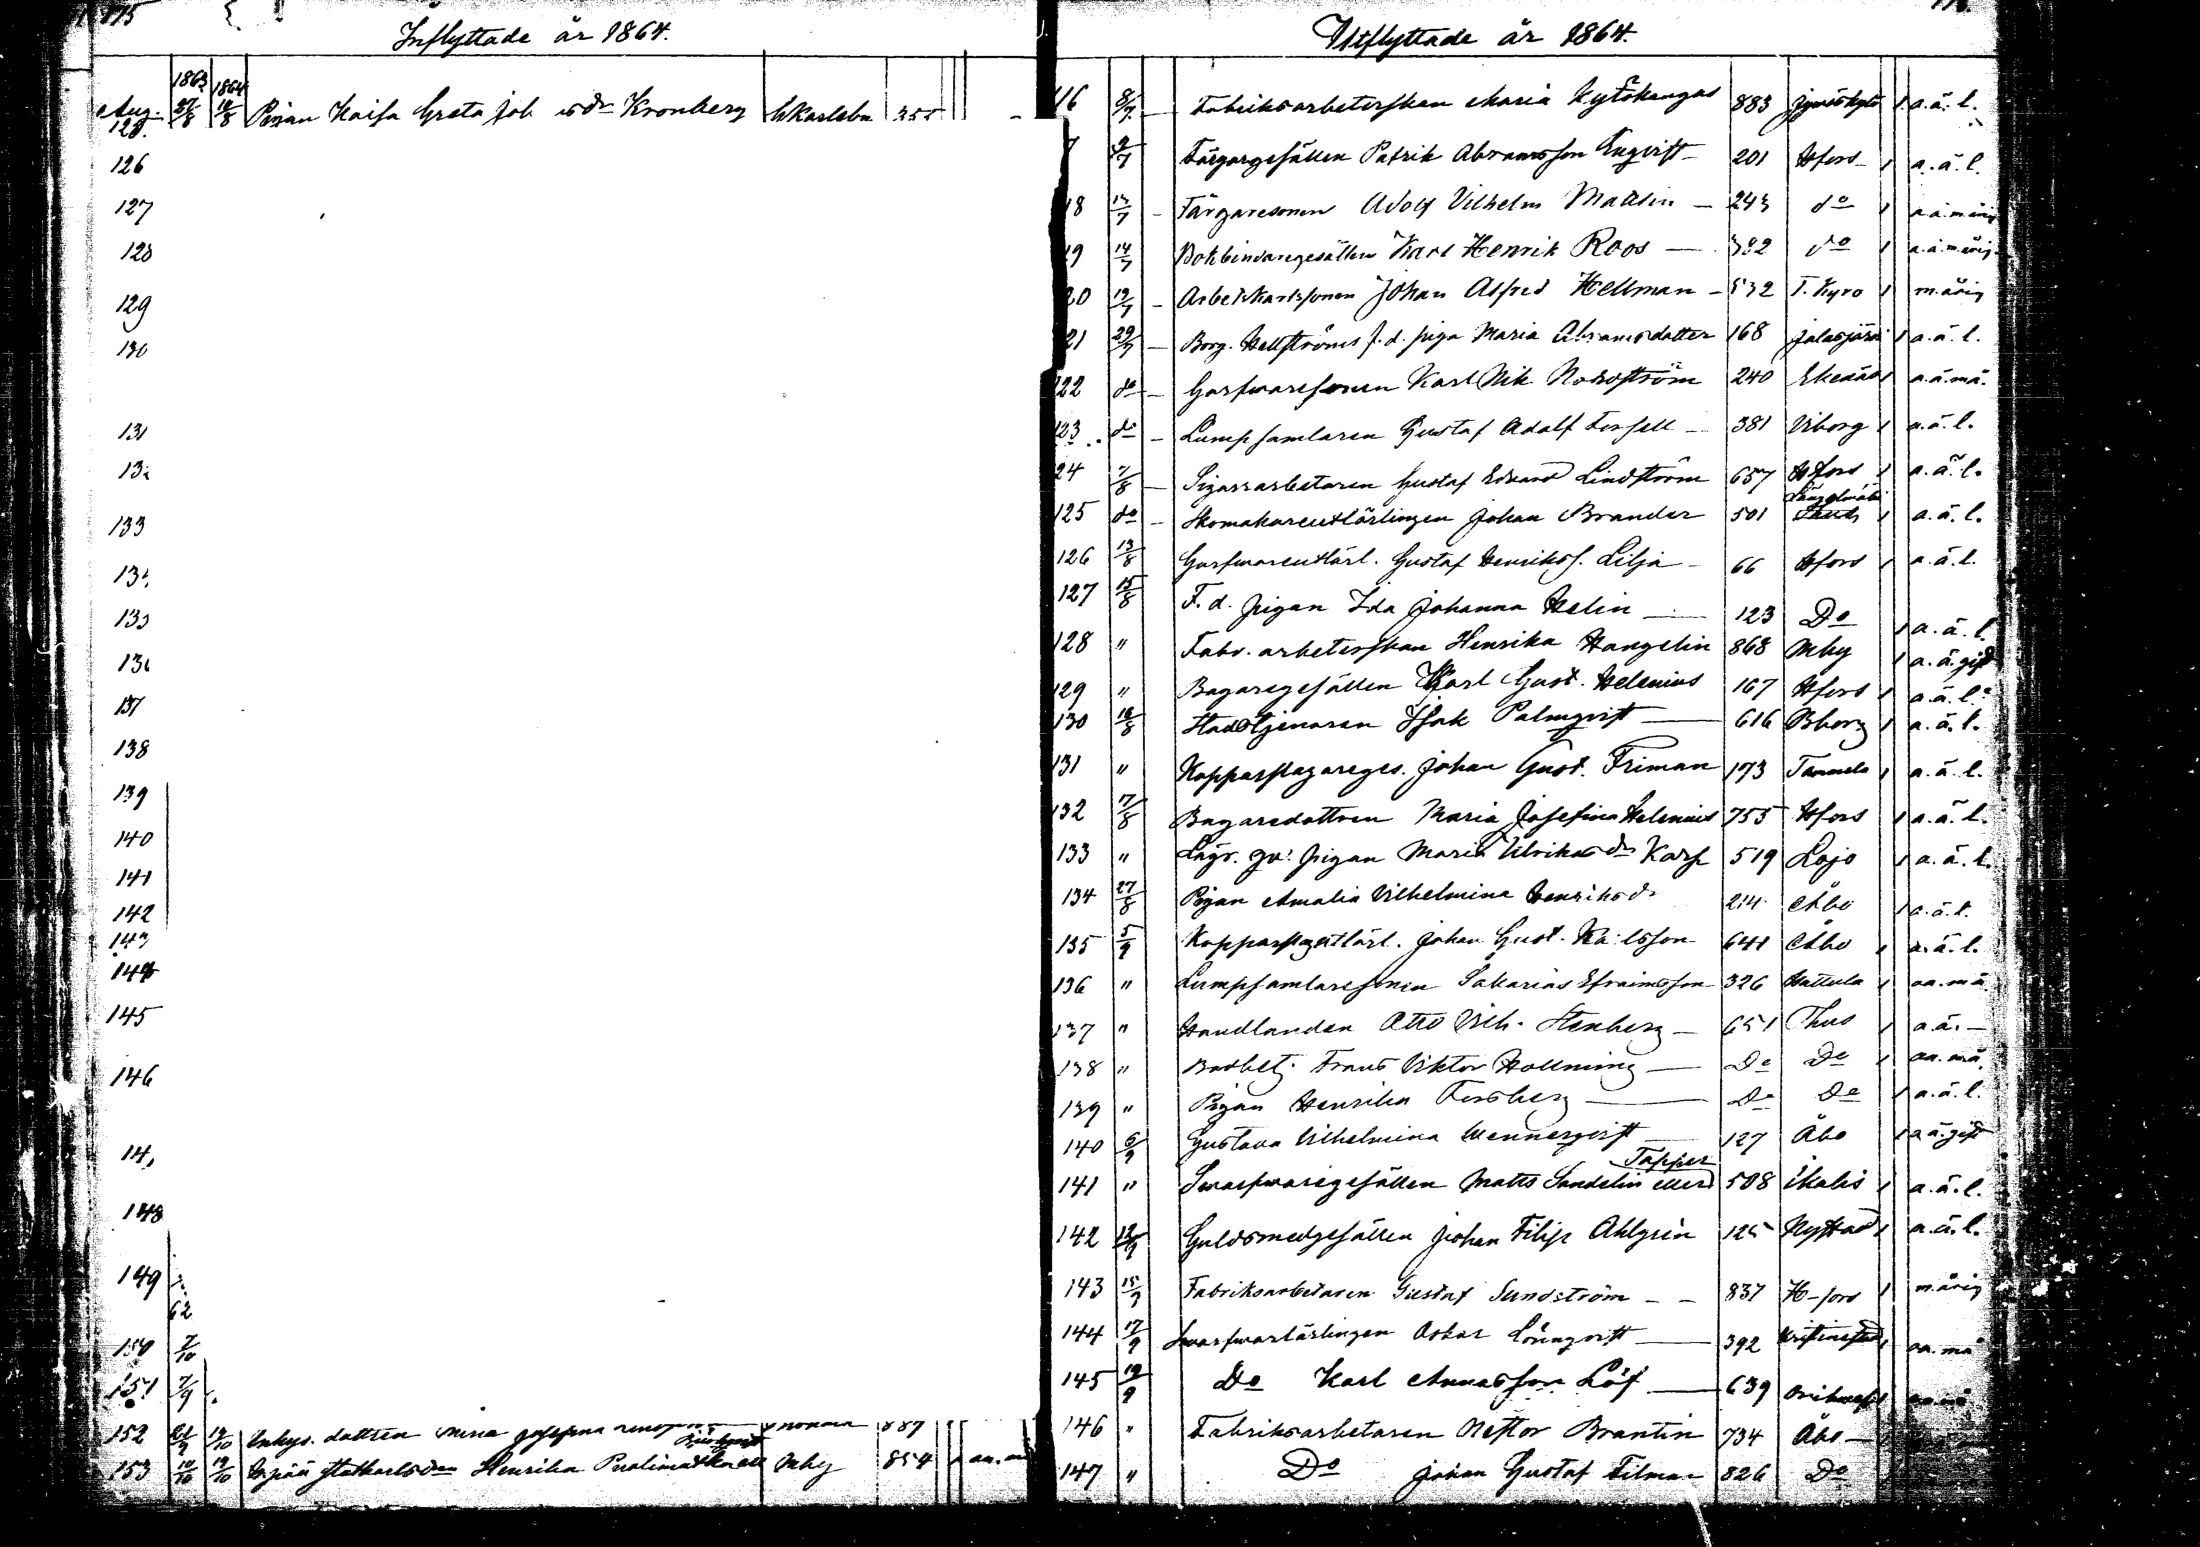 Inflyttade år 1864.
1863 1864
Aug.
125. 27/8 12/8 Pigan Kaisa Greta Joh. Kronberg 355
126
127
128
129
130
131
132
133
135
137
138
139
140
141
142
143
144
145
146
148
149
62
150 7/10
151 7/9
152 21/9 14/10 dattren 887
153 10/10 19/10 Henrika Mby 854
Utflyttade år 1864.
116 8/7 Fabriksarbeterskan Maria Kytökangas 883 1 a.ä.l.
7 9/7 Färgargesällen Patrik Abramsson Engvist 201 Hfors 1 a.ä.l.
18 12/7 Färgaresonen Adolf Vilhelm Mattlin 243 do 1
19 14/7 Bokbindaregesällen Karl Henrik Roos 382 do 1
20 19/7 Arbetskarlssonen Johan Alfred Hellman 532 T. Kyro 1 m.årig
21 29/7 Borg. Hellströms f.d. piga Maria Abramsdotter 168 Jalasjärvi 1 a.ä.l.
122 do Garfwaresonen Karl Nik. Nordström 240 Ekenäs 1 a.ä.må.
123 do Lumpsamlaren Gustaf Adolf Forsell 381 Viborg 1 a.ä.l.
24 7/8 Sigarrarbetaren Gustaf Edvard Lindström 657 Hfors 1 a.ä.l.
Längelmäki
125 do Skomakareutlärlingen Johan Brander 501 1 a.ä.l.
126 13/8 Garfwareutlärl. Gustaf Henrikss. Lilja 66 Hfors 1 a.ä.l.
127 15/8 F.d. pigan Ida Johanna Helin 123 Do 1 a.ä.l.
128 " Fabr. arbeterskan Henrika Hangelin 868 Mby 1 a.ä.gift
129 " Bagaregesällen Karl Gust. Helenius 167 Hfors 1 a.ä.l.
130 16/8 Stadstjenaren Isak Palmqvist 616 Bborg 1 a.ä.l.
131 " Kopparslagareges. Johan Gust. Friman 173 Tammela 1 a.ä.l.
132 17/8 Bagaredottren Maria Josefina Helenius 755 Hfors 1 a.ä.l.
133 " pigan Maria Ulrikasdr Karp 519 Lojo 1 a.ä.l.
134 27/8 Pigan Amalia Vilhelmina Henriksdr 214 Åbo 1 a.ä.l.
135 5/9 Johan Gust. Karlsson 641 Åbo 1 a.ä.l.
136 " Lumpsamlaresonen Sakarias Efraimsson 326 Hattula 1 aa.må
137 " Handlanden Otto Vilh. Stenberg 651 Thus 1 a.ä.
138 " Bodbetj. Frans Viktor Hollming Do Do 1 aa.må.
139 " Pigan Henrika Forsberg Do Do 1 a.ä.l.
140 6/9 Gustava Vilhelmina Wennerqvist 127 Åbo 1 a.ä.gift
Tapper
141 " Swarfwaregesällen Matts Sandelin eller 508 Ikalis 1 a.ä.l.
142 12/9 Guldsmedgesällen Johan Filip Ahlgrén 125 Nystad 1 a.ä.l.
143 15/9 Fabriksarbetaren Gustaf Sundström 837 H-fors 1 m.årig
144 17/9 Swarfwarlärlingen Oskar Lönnqvist 392 Kristinestad 1 aa.må
145 19/9 Do Karl Annasson Löf 639
146 " Fabriksarbetaren Nestor Brantin 734 Åbo
147 " Do Johan Gustaf Filman 826 Do